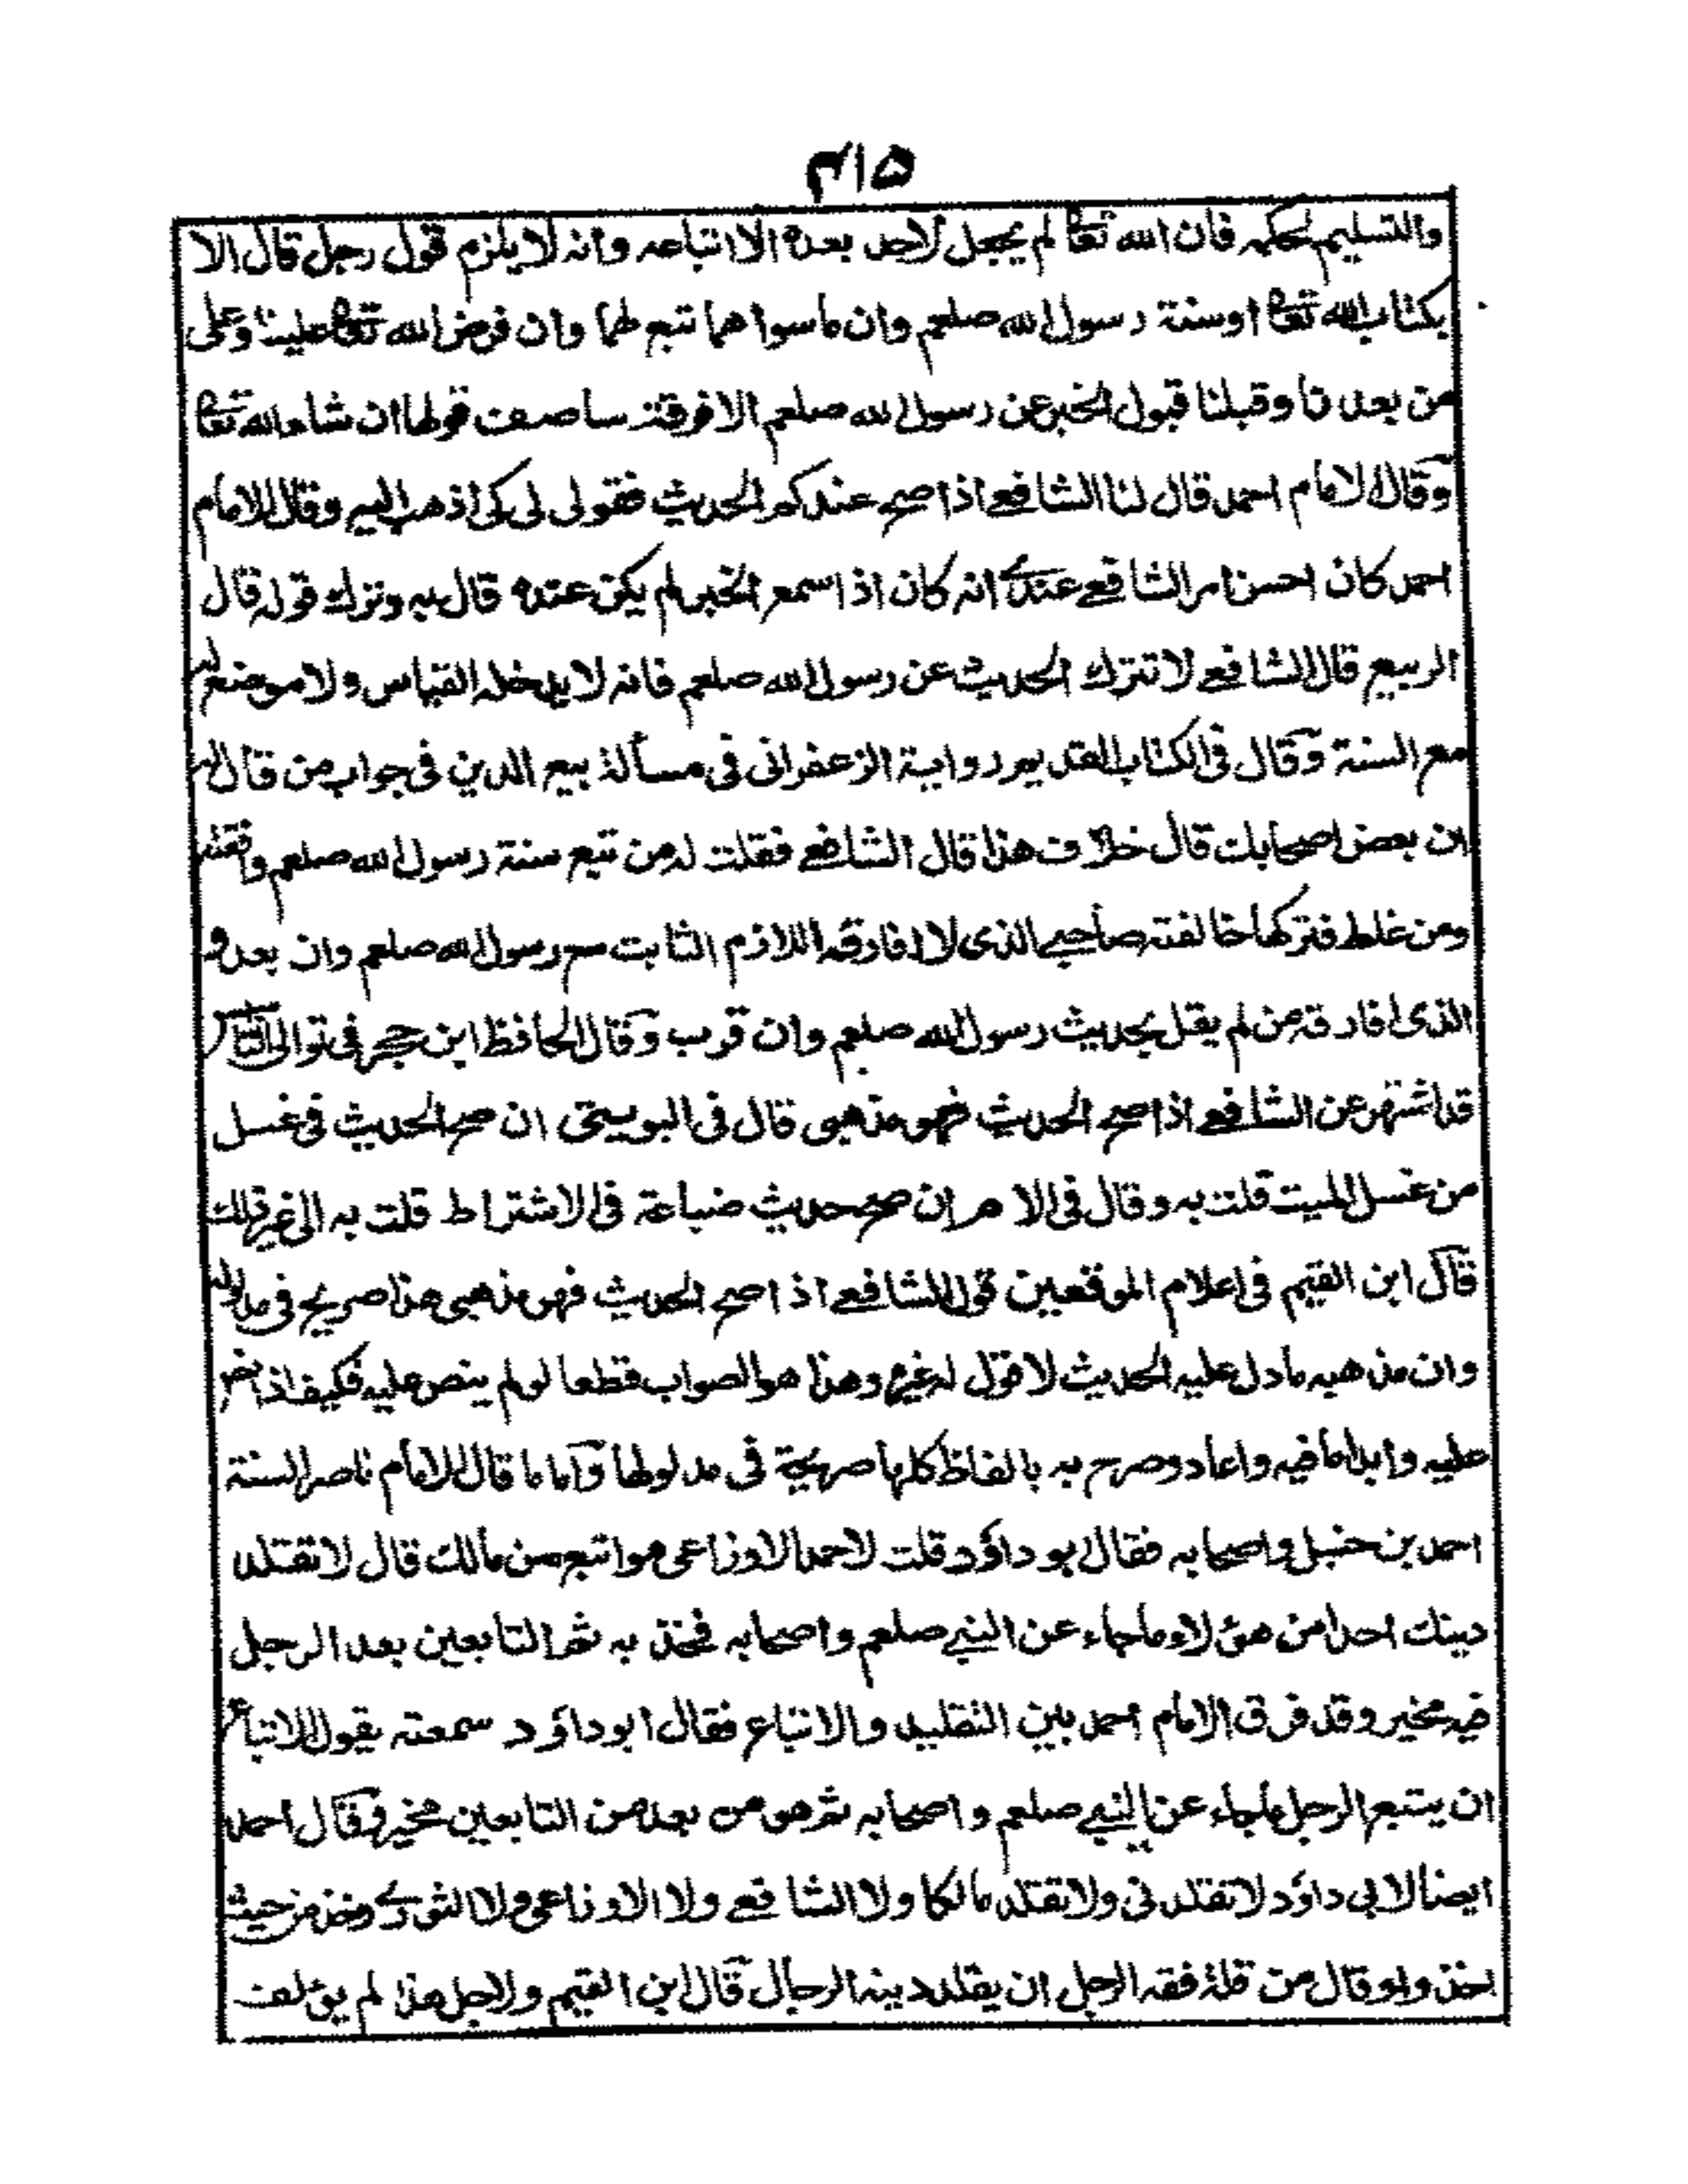 ۴۱۵
والتسليم لحكمه فان الله تعا لم يجعل لاحد بعده الا اتباعه وانه لا يلزم قول رجل قال الا
بكتاب الله تعا او سنة رسول الله صلعم وان ما سواهما تبع لهما وان فرض الله تعا علينا وعلى
من بعدنا وقبلنا قبول الخبر عن رسول الله صلعم الا فرقة ساصف قولها ان شاء الله تعا
وقال الامام احمد قال لنا الشافعے اذا صح عندكم الحديث فقولى لى كى اذهب اليه وقال الامام
احمد كان احسن امر الشافعے عندے انه كان اذا سمع الخبر لم يكن عنده قال به وترك قوله قال
الربيع قال الشافعے لا تترك الحديث عن رسول الله صلعم فانه لا يدخله القياس ولا موضع له
مع السنة وقال فى الكتاب القديم رواية الزعفرانى فى مسألة بيع الدين فى جواب من قال له
ان بعض اصحابك قال خلاف هذا قال الشافعے فقلت له من تبع سنة رسول الله صلعم وافقته
ومن غلط فتركها خالفته صاحبے الذى لا افارقه اللازم الثابت مع رسول الله صلعم وان بعد و
الذى افارقه من لم يقل بحديث رسول الله صلعم وان قرب وقال الحافظ ابن حجر فى توالى التاسيس
قد اشتهر عن الشافعے اذا صح الحديث فهو مذهبى قال فى البويطى ان صح الحديث فى غسل
من غسل الميت قلت به وقال فى الام ان صح حديث ضباعة فى الاشتراط قلت به الى غير ذلك
قال ابن القيم فى اعلام الموقعين قول الشافعے اذا صح الحديث فهو مذهبى هذا صريح فى مدلوله
وان مذهبه ما دل عليه الحديث لا قول له غيره وهذا هو الصواب قطعا لو لم ينص عليه فكيف اذا نص
عليه وابدا فيه واعاد وصرح به بالفاظ كلها صريحة فى مدلولها واما ما قال الامام ناصر السنة
احمد بن حنبل واصحابه فقال ابو داؤد قلت لاحمد الاوزاعى هو اتبع من مالك قال لا تقتلد
دينك احدا من هؤلاء ما جاء عن النبے صلعم واصحابه فخذ به ثم التابعين بعد الرجل
فيه مخير وقد فرق الامام احمد بين التقليد والاتباع فقال ابو داؤد سمعته يقول الاتباع
ان يتبع الرجل ما جاء عن النبے صلعم و اصحابه ثم هو من بعد من التابعين مخير وقال احمد
ايضا لابى داؤد لا تقتلدنى ولا تقتلد مالكا ولا الشافعے ولا الاوزاعى ولا الثورے وخذ من حيث
اخذوا وقال من قلة فقه الرجل ان يقلد دينه الرجال قال ابن القيم ولاجل هذا لم يؤلف